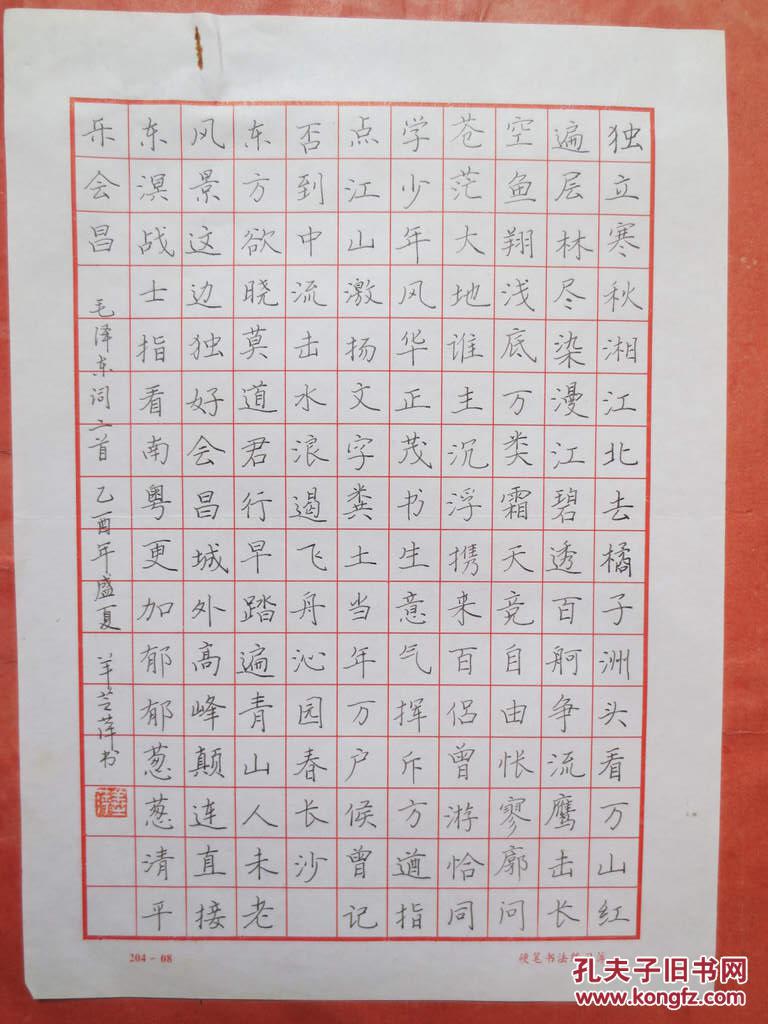 独立寒秋湘江北去橘子洲头看万山红
遍层林尽染漫江碧透百舸争流鹰击长
空鱼翔浅底万类霜天竞自由怅寥廓问
苍茫大地谁主沉浮携来百侣曾游恰同
学少年风华正茂书生意气挥斥方遒指
点江山激扬文字粪土当年万户候曾记
否到中流击水浪遏飞舟沁园春长沙
东方欲晓莫道君行早踏遍青山人未老
风景这边独好会昌城外高峰颠连直接
东溟战士指看南粤更加郁郁葱葱清平
乐会昌 毛泽东词二首 乙酉年盛夏 羊萍书
204-08
硬笔书法
孔夫子旧书网
www.kongfz.com